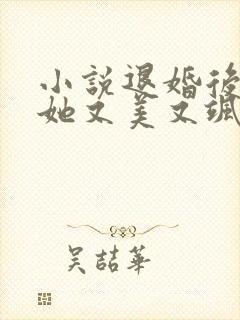 小說退婚後
她又美又颯
吴喆華